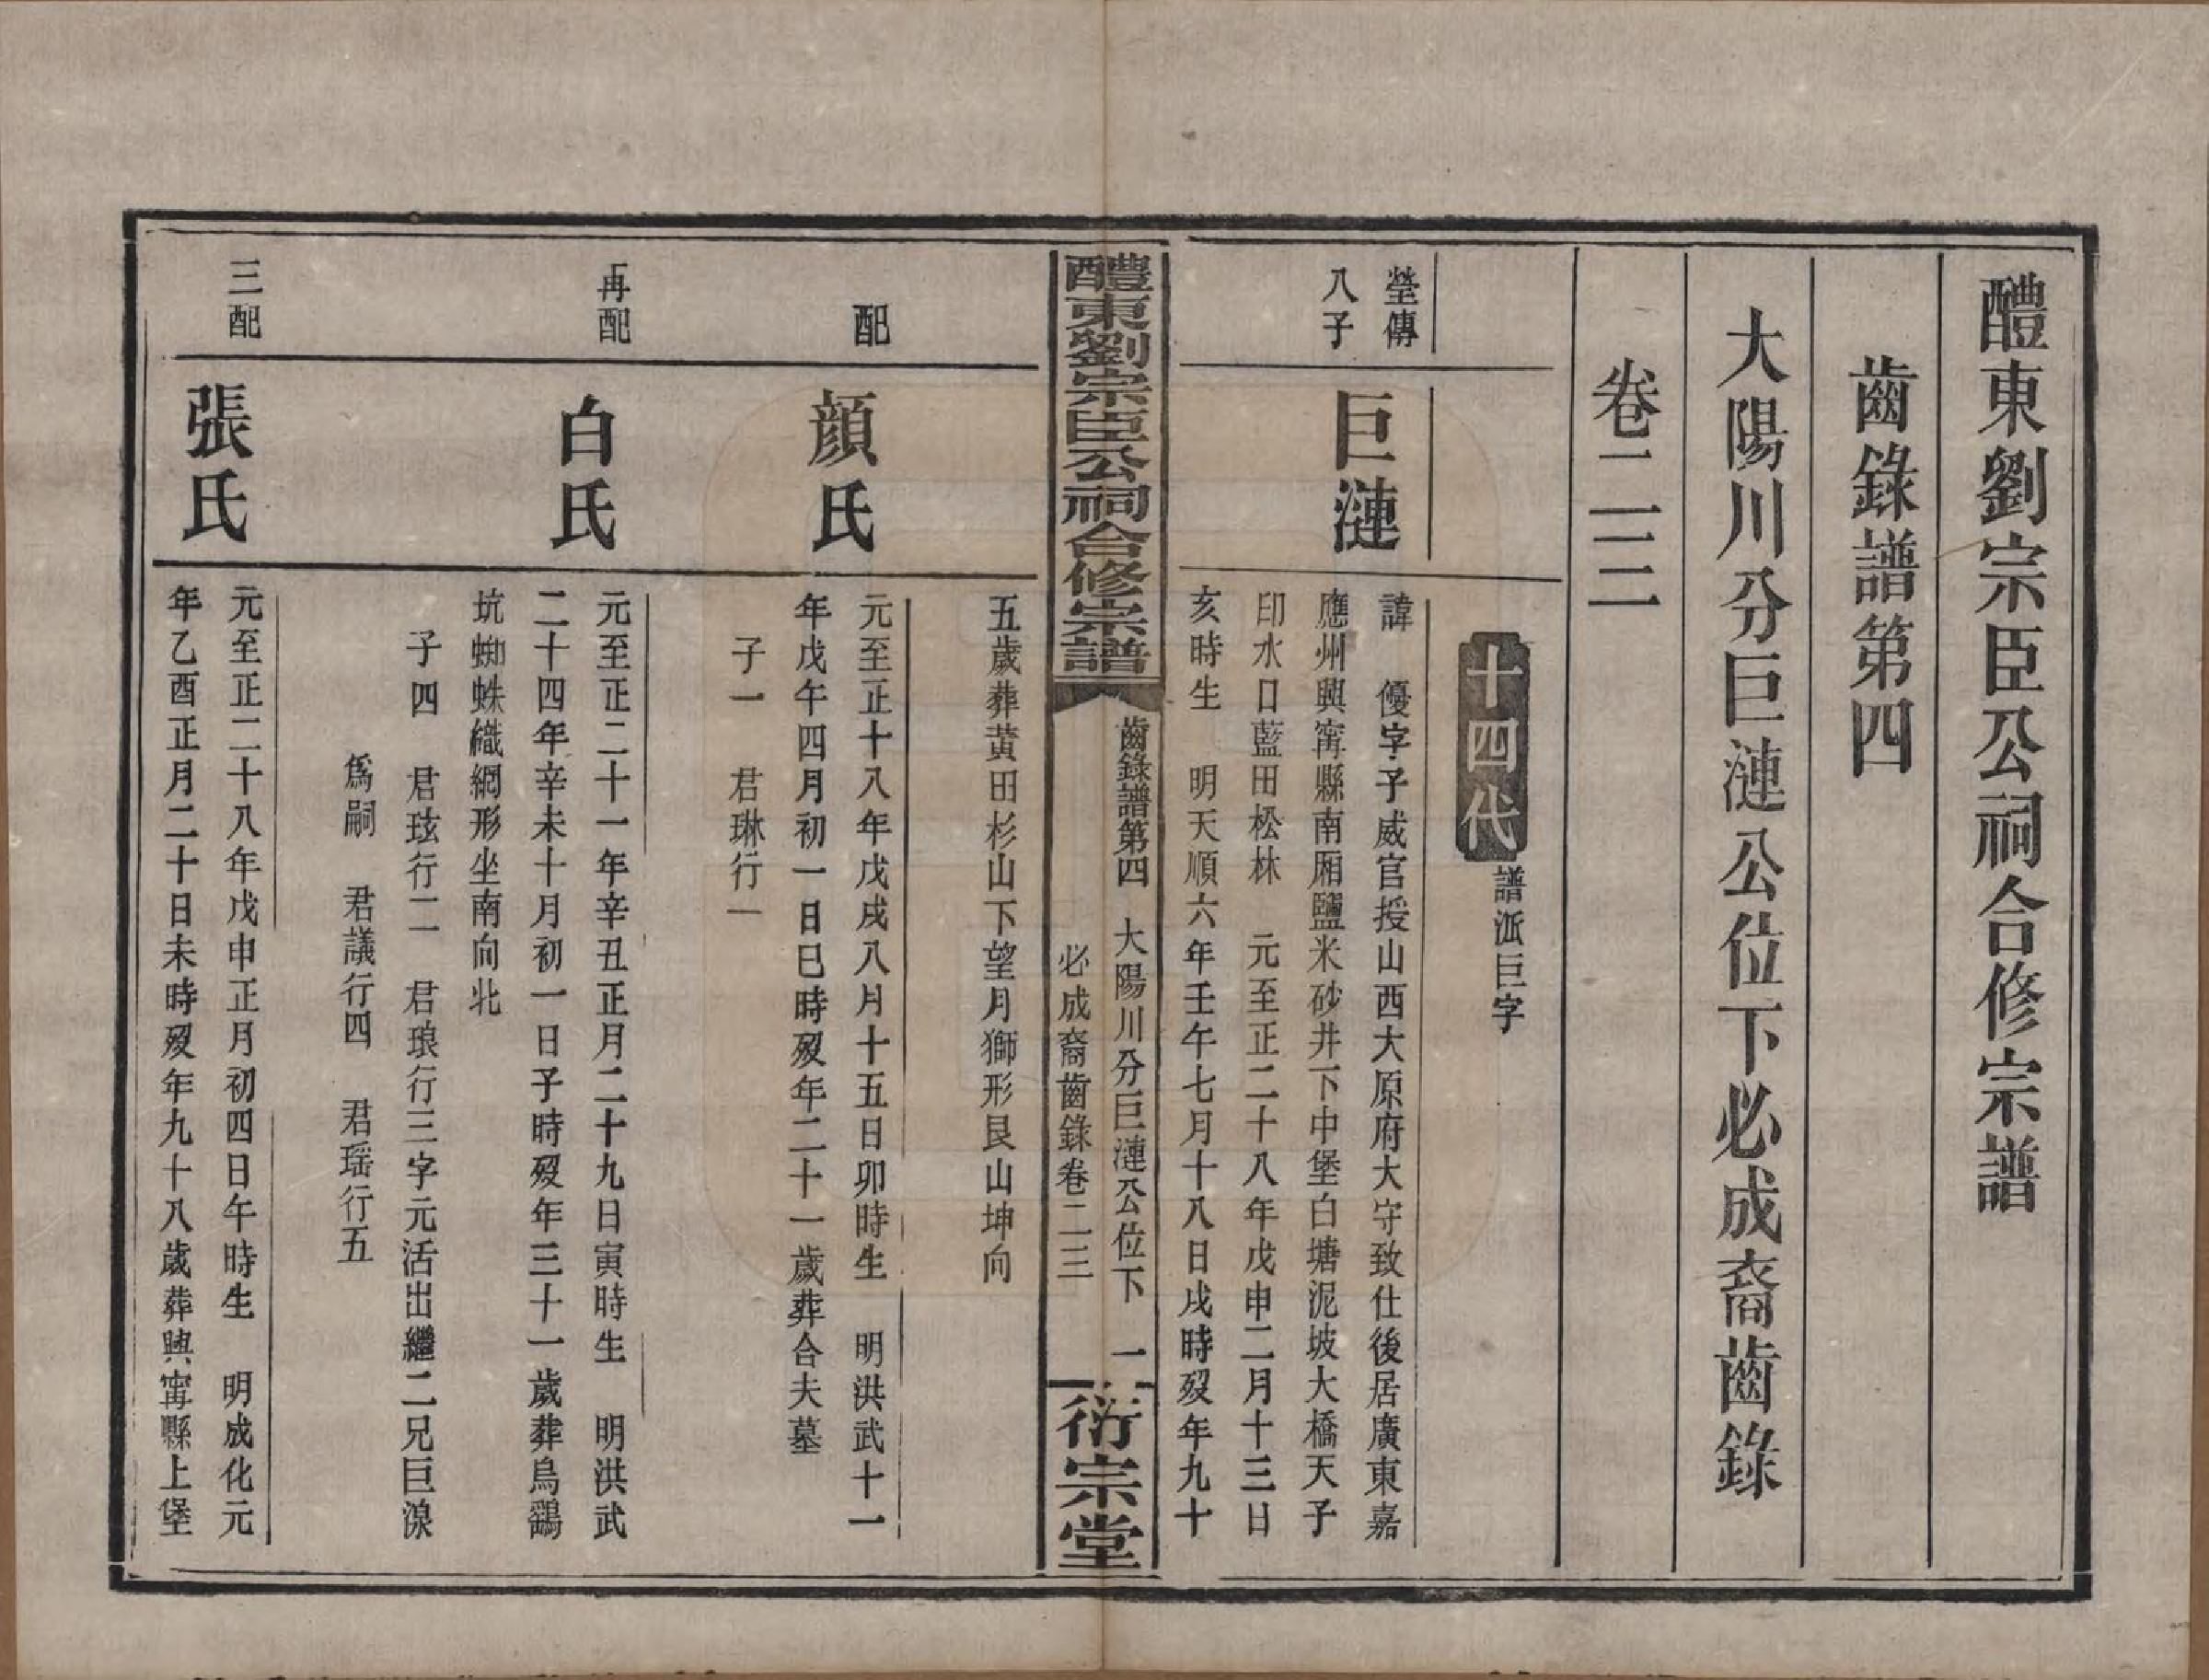 醴東劉宗臣公祠合修宗譜
齒錄譜第四
大陽川分巨漣公位下必成裔齒錄
卷二三
十四代
譜派巨字
瑩傳
八子
巨漣
諱　優字子威官授山西大原府大守致仕後居廣東嘉
應州興寗縣南厢鹽米砂井下中堡白塘泥坡大橋天子
印水口藍田松林　元至正二十八年戊申二月十三日
亥時生　明天順六年壬午七月十八日戌時歿年九十
醴東劉宗臣公祠合修宗譜
齒錄譜第四　大陽川分巨漣公位下　一
必成裔齒錄卷二三
衍宗堂
五歲葬黃田杉山下望月獅形艮山坤向
配
顏氏
元至正十八年戊戌八月十五日卯時生　明洪武十一
年戊午四月初一日巳時歿年二十一歲葬合夫墓
子一　君琳行一
再配
白氏
元至正二十一年辛丑正月二十九日寅時生　明洪武
二十四年辛未十月初一日子時歿年三十一歲葬烏鷂
坑蜘蛛織網形坐南向北
子四　君玹行二　君琅行三字元活出繼二兄巨湶
爲嗣　君議行四　君瑶行五
三配
張氏
元至正二十八年戊申正月初四日午時生　明成化元
年乙酉正月二十日未時歿年九十八歲葬興寗縣上堡